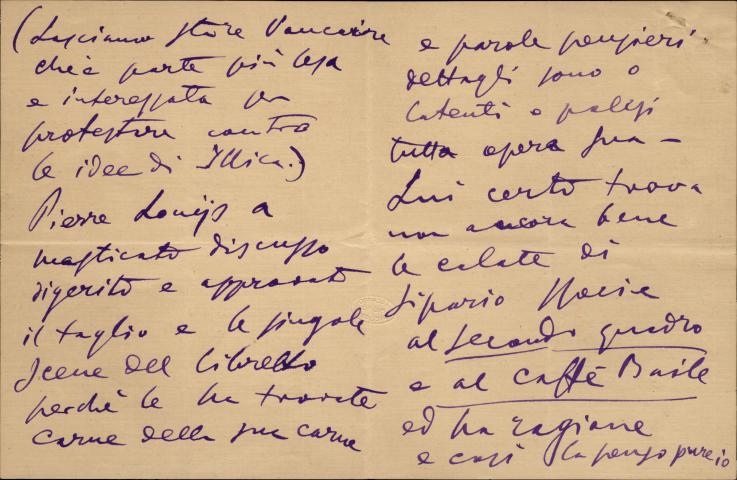 (Lasciamo stare Vaucaire
ch'è parte più lesa
e interessata per
protestare contro
le idee di Illica.)
Pierre Louijs a
masticato discusso
digerito e approvato
il taglio e le singole
scene del libretto
perchè le ha trovate
carne della sua carne
e parole pensieri
dettagli sono o
latenti o palesi
tutta opera sua –
Lui certo trova
non ancora bene
le calate di
sipario specie
al secondo quadro
e al caffè Basile
ed ha ragione
e così la penso pure io